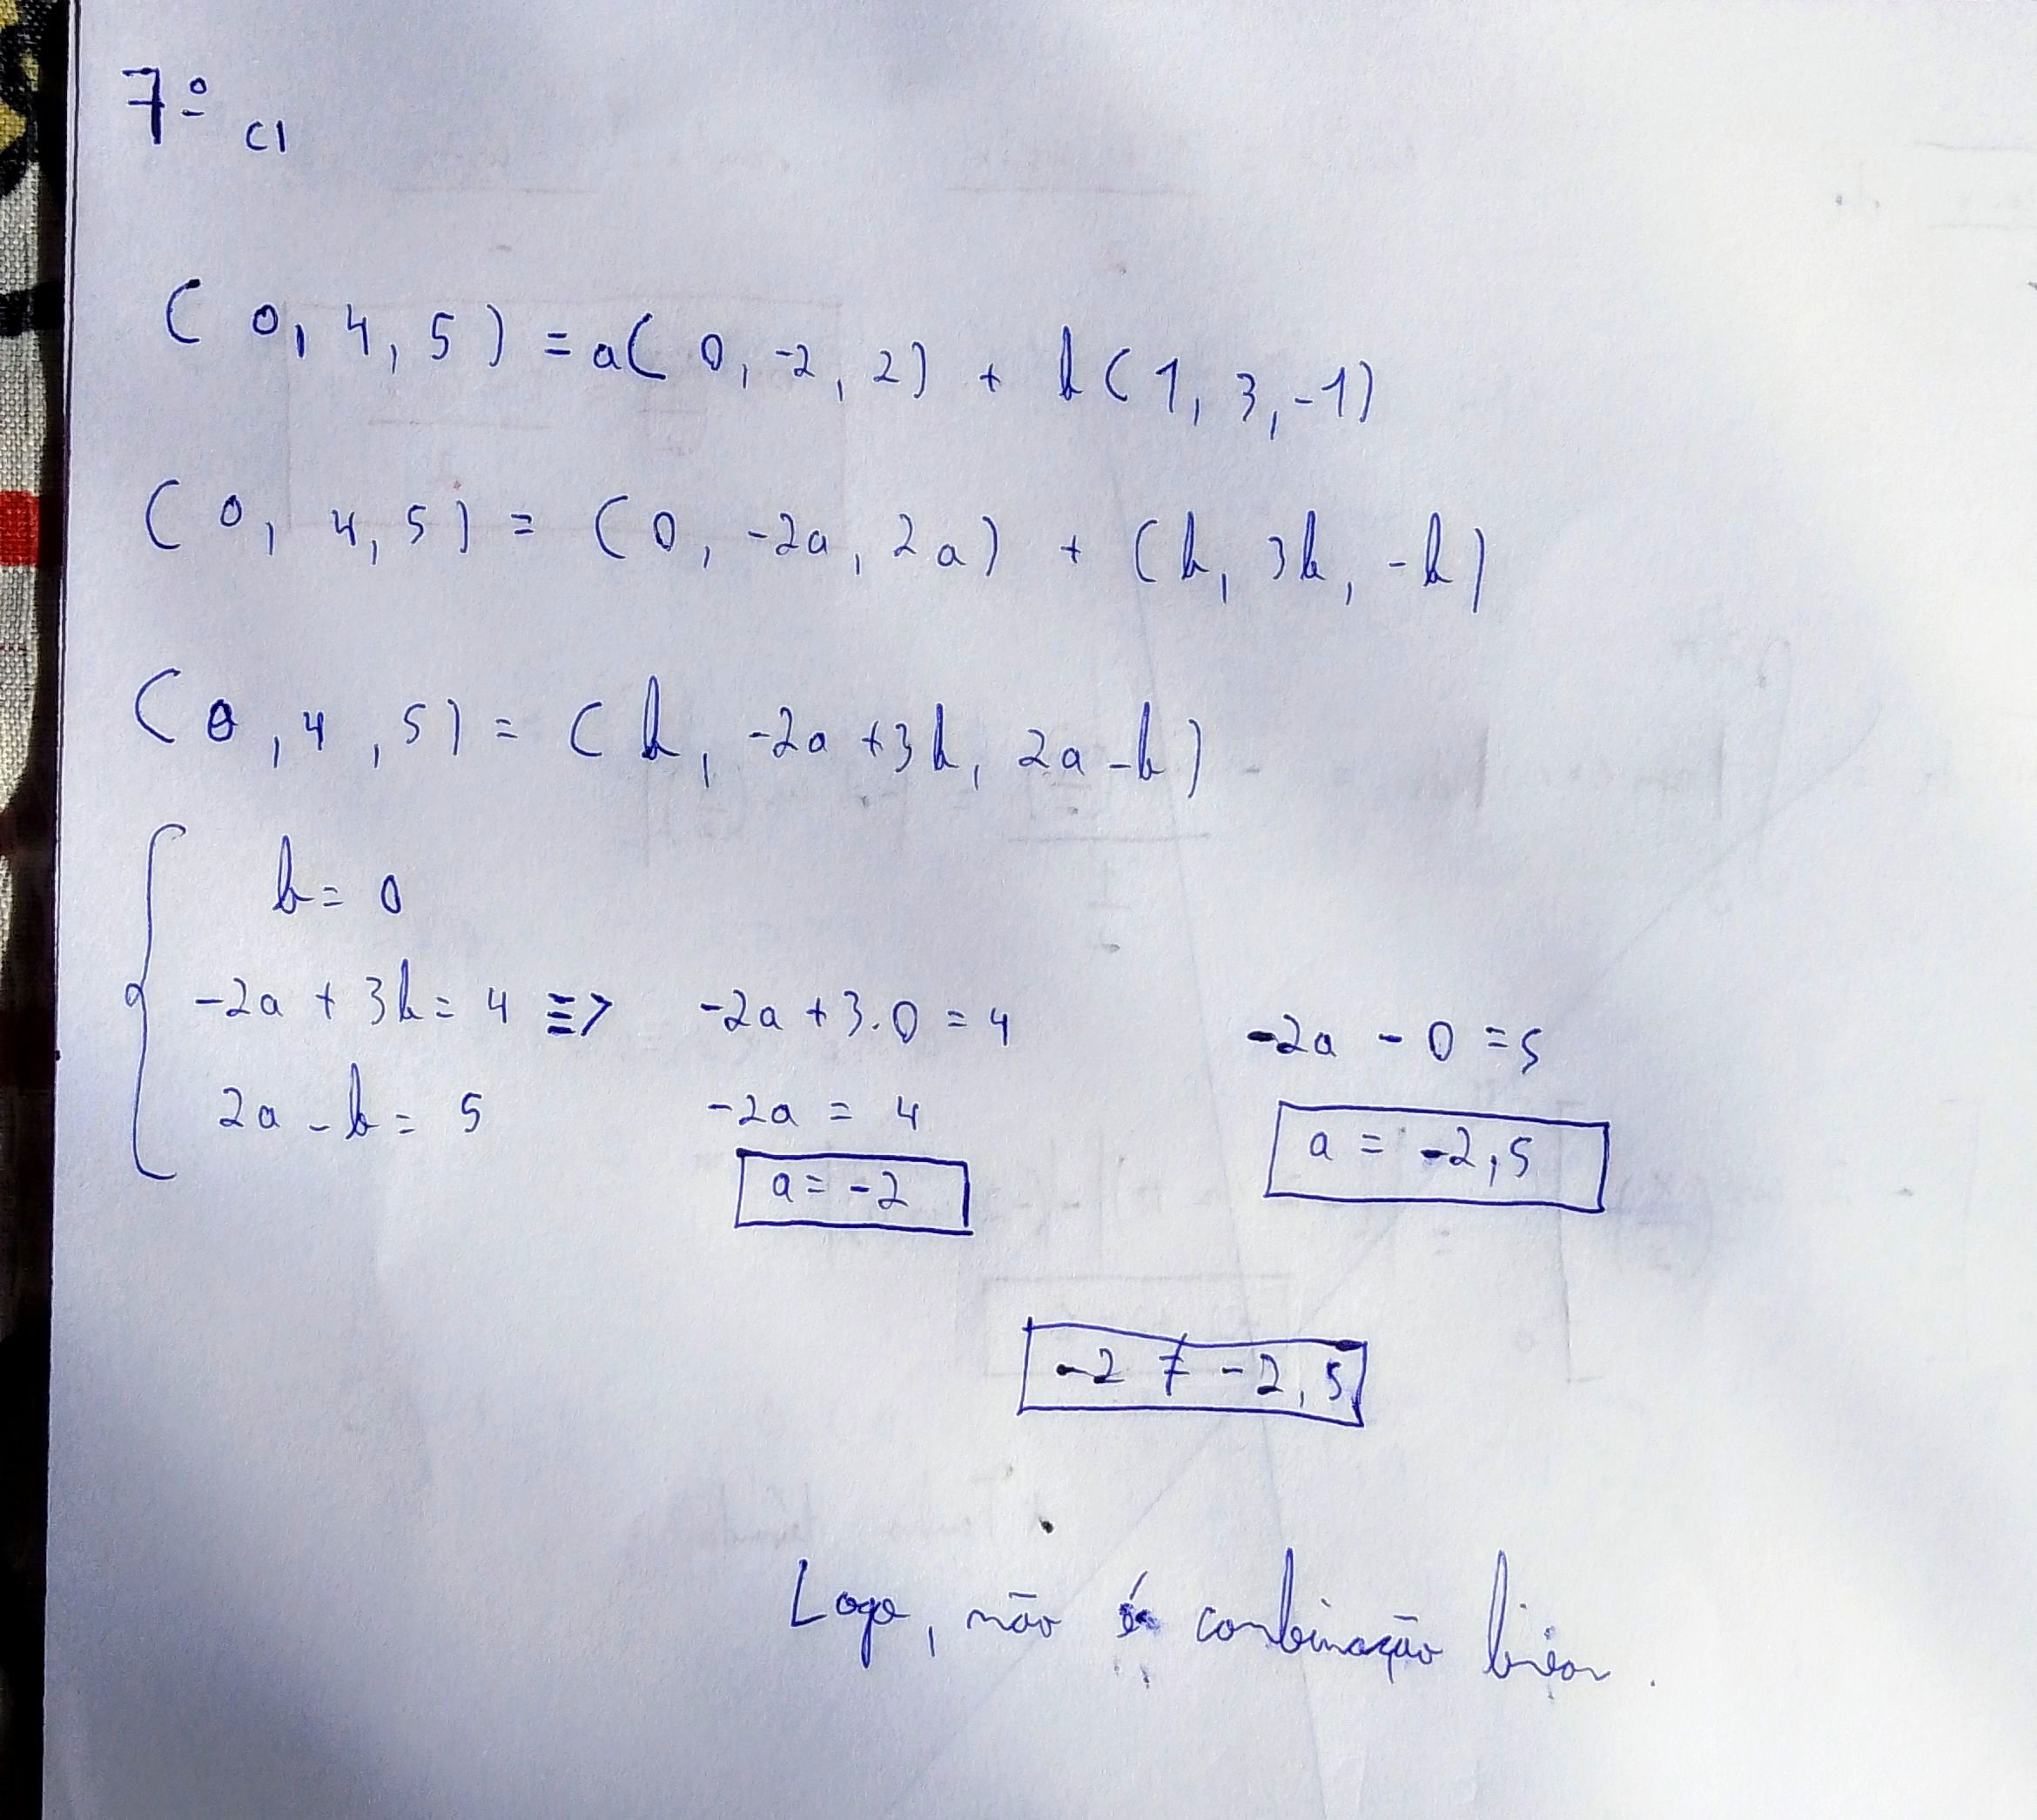 7º c)
(0, 4, 5) = a(0, -2, 2) + b(1, 3, -1)
(0, 4, 5) = (0, -2a, 2a) + (b, 3b, -b)
(0, 4, 5) = (b, -2a + 3b, 2a - b)
b = 0
-2a + 3b = 4 => -2a + 3.0 = 4 -2a - 0 = 5
2a - b = 5 -2a = 4 a = -2,5
a = -2
-2 ≠ -2,5
Logo, não é combinação linear.